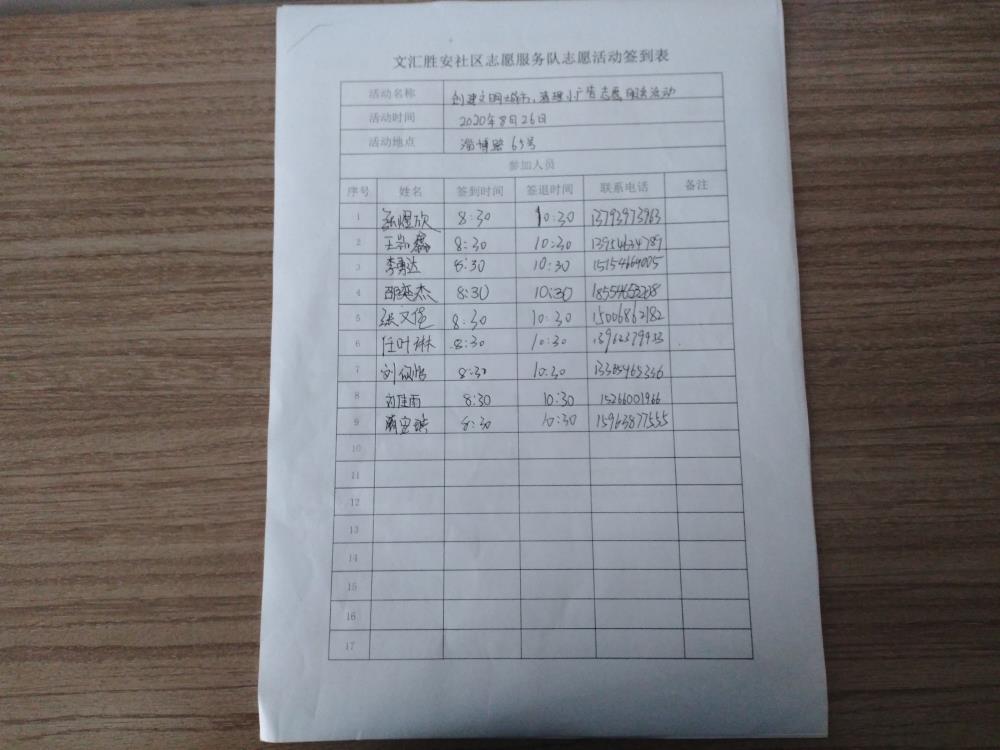 文汇胜安社区志愿服务队志愿活动签到表
活动名称 创建文明城市,清理小广告志愿服务活动
活动时间 2020年8月26日
活动地点 淄博路65号
参加人员
序号 姓名 签到时间 签退时间 联系电话 备注
1 8:30 10:30 13793973963
2 8:30 10:30 13954634789
3 李勇达 8:30 10:30 15154664005
4 邵延杰 8:30 10:30
5 张文儒 8:30 10:30 15006862182
6 任叶琳 8:30 10:30
7 刘欣怡 8:30 10:30
8 刘佳雨 8:30 10:30 15266001966
9 8:30 10:30 15963877555
10
11
12
13
14
15
16
17